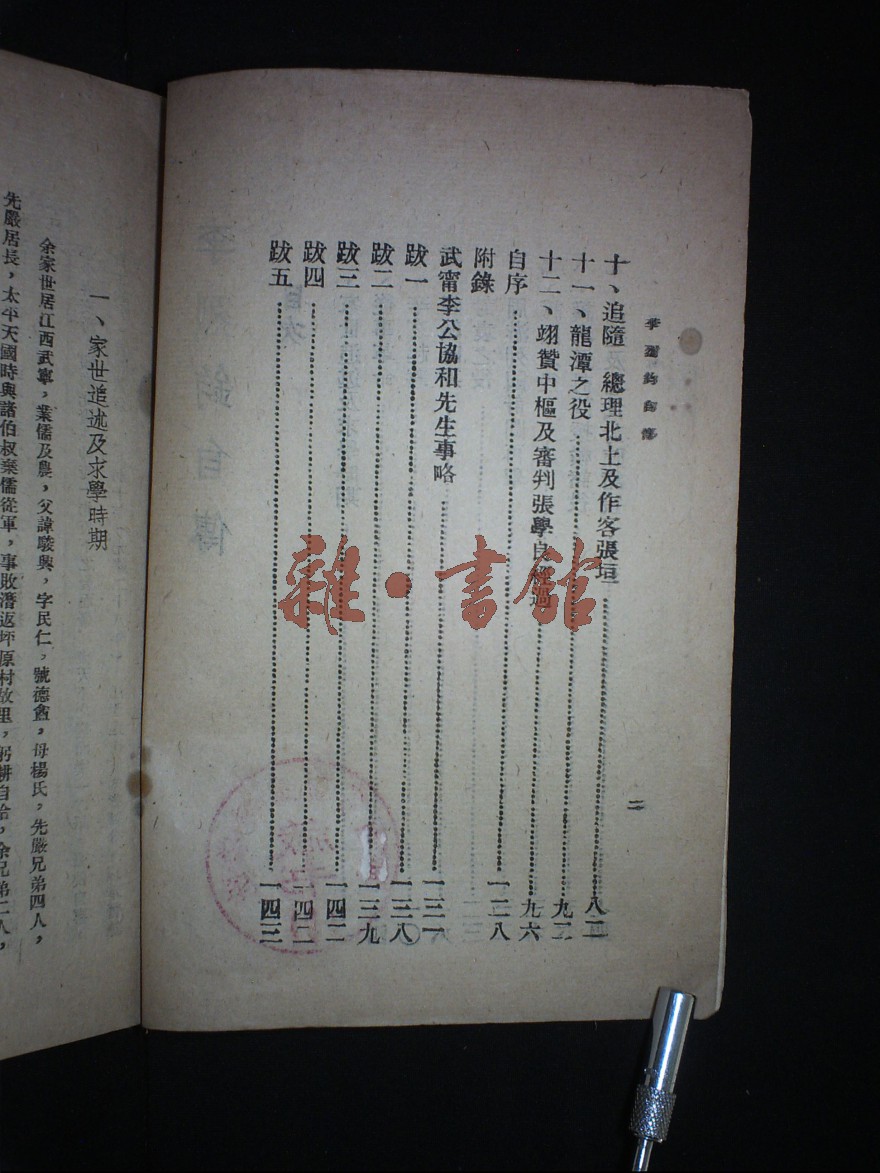 李烈鈞自傳
二
十、追隨 總理北上及作客張垣……八二
十一、龍潭之役……九二
十二、翊贊中樞及審判張學良經過……九六
自序……一二八
附錄
武甯李公協和先生事略……一三一
跋一……一三八
跋二……一三九
跋三……一四二
跋四……一四二
跋五……一四三
一、家世追述及求學時期
余家世居江西武寧，業儒及農，父諱駿興，字民仁，號德盦，母楊氏，先嚴兄弟四人，
先嚴居長，太平天國時與諸伯叔棄儒從軍，事敗潛返坪原村故里，躬耕自給，余兄弟二人，
雜·書館